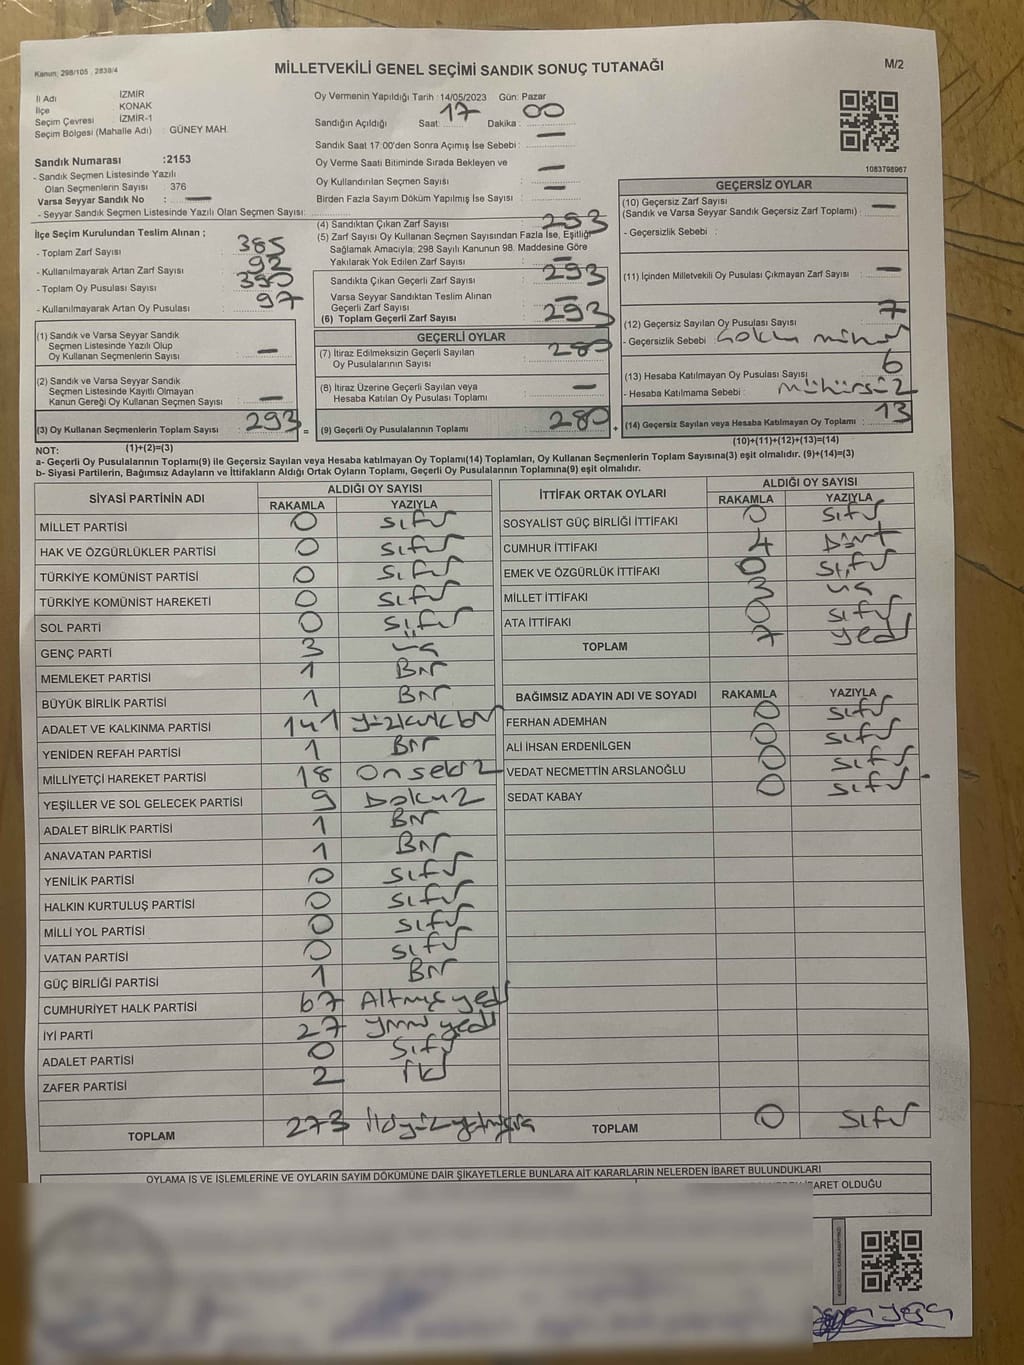 Kanun; 298/105 , 2839/4
MİLLETVEKİLİ GENEL SEÇİMİ SANDIK SONUÇ TUTANAĞI
M/2
İl Adı İZMİR
İlçe KONAK
Seçim Çevresi : İZMİR-1
Seçim Bölgesi (Mahalle Adı) : GÜNEY MAH.
Sandık Numarası :2153
- Sandık Seçmen Listesinde Yazılı
Olan Seçmenlerin Sayısı : 376
Varsa Seyyar Sandık No : —
- Seyyar Sandık Seçmen Listesinde Yazılı Olan Seçmen Sayısı:
Oy Vermenin Yapıldığı Tarih :14/05/2023 Gün: Pazar
Sandığın Açıldığı Saat: 17 Dakika : 00
Sandık Saat 17:00'den Sonra Açımış İse Sebebi : —
Oy Verme Saati Bitiminde Sırada Bekleyen ve
Oy Kullandırılan Seçmen Sayısı : —
Birden Fazla Sayım Döküm Yapılmış İse Sayısı : —
1083798967
İlçe Seçim Kurulundan Teslim Alınan ;
- Toplam Zarf Sayısı : 385
- Kullanılmayarak Artan Zarf Sayısı : 92
- Toplam Oy Pusulası Sayısı : 390
- Kullanılmayarak Artan Oy Pusulası : 97
(1) Sandık ve Varsa Seyyar Sandık
Seçmen Listesinde Yazılı Olup
Oy Kullanan Seçmenlerin Sayısı : —
(2) Sandık ve Varsa Seyyar Sandık
Seçmen Listesinde Kayıtlı Olmayan
Kanun Gereği Oy Kullanan Seçmen Sayısı : —
(3) Oy Kullanan Seçmenlerin Toplam Sayısı : 293 =
(4) Sandıktan Çıkan Zarf Sayısı : 293
(5) Zarf Sayısı Oy Kullanan Seçmen Sayısından Fazla İse, Eşitliği
Sağlamak Amacıyla; 298 Sayılı Kanunun 98. Maddesine Göre
Yakılarak Yok Edilen Zarf Sayısı : —
Sandıkta Çıkan Geçerli Zarf Sayısı : 293
Varsa Seyyar Sandıktan Teslim Alınan
Geçerli Zarf Sayısı : —
(6) Toplam Geçerli Zarf Sayısı : 293
GEÇERLİ OYLAR
(7) İtiraz Edilmeksizin Geçerli Sayılan
Oy Pusulalarının Sayısı : 280
(8) İtiraz Üzerine Geçerli Sayılan veya
Hesaba Katılan Oy Pusulası Toplamı : —
(9) Geçerli Oy Pusulalarının Toplamı : 280 +
GEÇERSİZ OYLAR
(10) Geçersiz Zarf Sayısı
(Sandık ve Varsa Seyyar Sandık Geçersiz Zarf Toplamı) : —
- Geçersizlik Sebebi :
(11) İçinden Milletvekili Oy Pusulası Çıkmayan Zarf Sayısı : —
(12) Geçersiz Sayılan Oy Pusulası Sayısı : 7
- Geçersizlik Sebebi : çoklu mühür
(13) Hesaba Katılmayan Oy Pusulası Sayısı : 6
- Hesaba Katılmama Sebebi : mühürsüz
(14) Geçersiz Sayılan veya Hesaba Katılmayan Oy Toplamı : 13
NOT: (1)+(2)=(3)
(10)+(11)+(12)+(13)=(14)
a- Geçerli Oy Pusulalarının Toplamı(9) ile Geçersiz Sayılan veya Hesaba katılmayan Oy Toplamı(14) Toplamları, Oy Kullanan Seçmenlerin Toplam Sayısına(3) eşit olmalıdır. (9)+(14)=(3)
b- Siyasi Partilerin, Bağımsız Adayların ve İttifakların Aldığı Ortak Oyların Toplamı, Geçerli Oy Pusulalarının Toplamına(9) eşit olmalıdır.
SİYASİ PARTİNİN ADI ALDIĞI OY SAYISI
RAKAMLA YAZIYLA
MİLLET PARTİSİ 0 sıfır
HAK VE ÖZGÜRLÜKLER PARTİSİ 0 sıfır
TÜRKİYE KOMÜNİST PARTİSİ 0 sıfır
TÜRKİYE KOMÜNİST HAREKETİ 0 sıfır
SOL PARTİ 0 sıfır
GENÇ PARTİ 3 üç
MEMLEKET PARTİSİ 1 Bir
BÜYÜK BİRLİK PARTİSİ 1 Bir
ADALET VE KALKINMA PARTİSİ 141 yüzkırkbir
YENİDEN REFAH PARTİSİ 1 Bir
MİLLİYETÇİ HAREKET PARTİSİ 18 onsekiz
YEŞİLLER VE SOL GELECEK PARTİSİ 9 Dokuz
ADALET BİRLİK PARTİSİ 1 Bir
ANAVATAN PARTİSİ 1 Bir
YENİLİK PARTİSİ 0 sıfır
HALKIN KURTULUŞ PARTİSİ 0 sıfır
MİLLİ YOL PARTİSİ 0 sıfır
VATAN PARTİSİ 0 sıfır
GÜÇ BİRLİĞİ PARTİSİ 1 Bir
CUMHURİYET HALK PARTİSİ 67 Altmış yedi
İYİ PARTİ 27 yirmi yedi
ADALET PARTİSİ 0 sıfır
ZAFER PARTİSİ 2 iki
TOPLAM 273 ikiyüzyetmişüç
İTTİFAK ORTAK OYLARI ALDIĞI OY SAYISI
RAKAMLA YAZIYLA
SOSYALİST GÜÇ BİRLİĞİ İTTİFAKI 0 sıfır
CUMHUR İTTİFAKI 4 Dört
EMEK VE ÖZGÜRLÜK İTTİFAKI 0 sıfır
MİLLET İTTİFAKI 3 üç
ATA İTTİFAKI 0 sıfır
TOPLAM 7 yedi
BAĞIMSIZ ADAYIN ADI VE SOYADI RAKAMLA YAZIYLA
FERHAN ADEMHAN 0 sıfır
ALİ İHSAN ERDENİLGEN 0 sıfır
VEDAT NECMETTİN ARSLANOĞLU 0 sıfır
SEDAT KABAY 0 sıfır
TOPLAM 0 sıfır
OYLAMA İŞ VE İŞLEMLERİNE VE OYLARIN SAYIM DÖKÜMÜNE DAİR ŞİKAYETLERLE BUNLARA AİT KARARLARIN NELERDEN İBARET BULUNDUKLARI
İBARET OLDUĞU